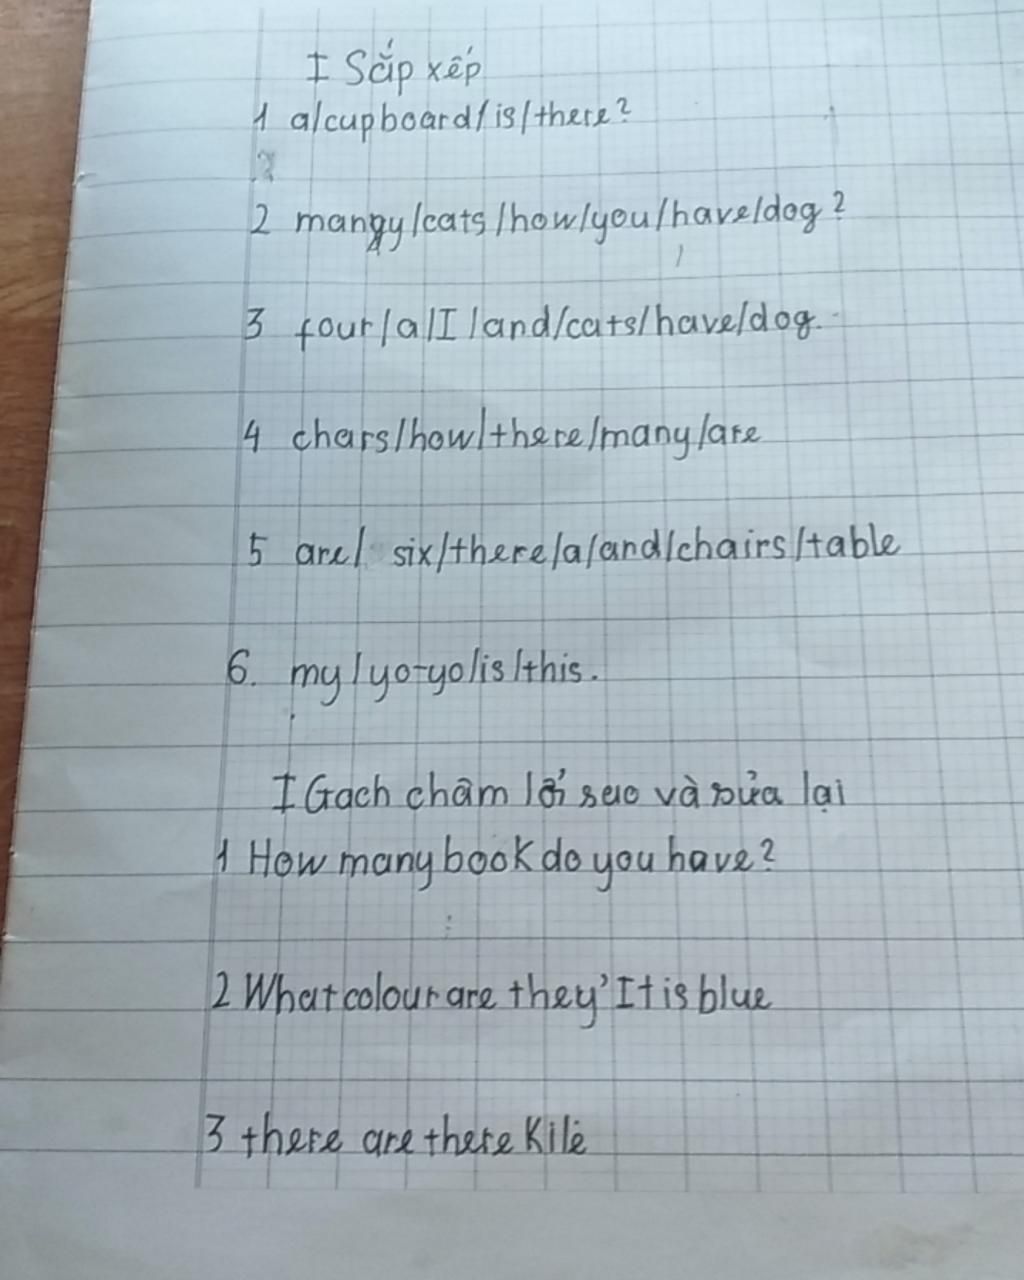 I Sắp xếp
1 a/cupboard/is/there?
2 mangy/cats/how/you/have/dog?
3 four/a/I/and/cats/have/dog.
4 chars/how/there/many/are
5 are/ six/there/a/and/chairs/table
6. my/yo-yo/is/this.
I Gach châm lỗi sao và sửa lại
1 How many book do you have?
2 What colour are they' It is blue
3 there are there Kile